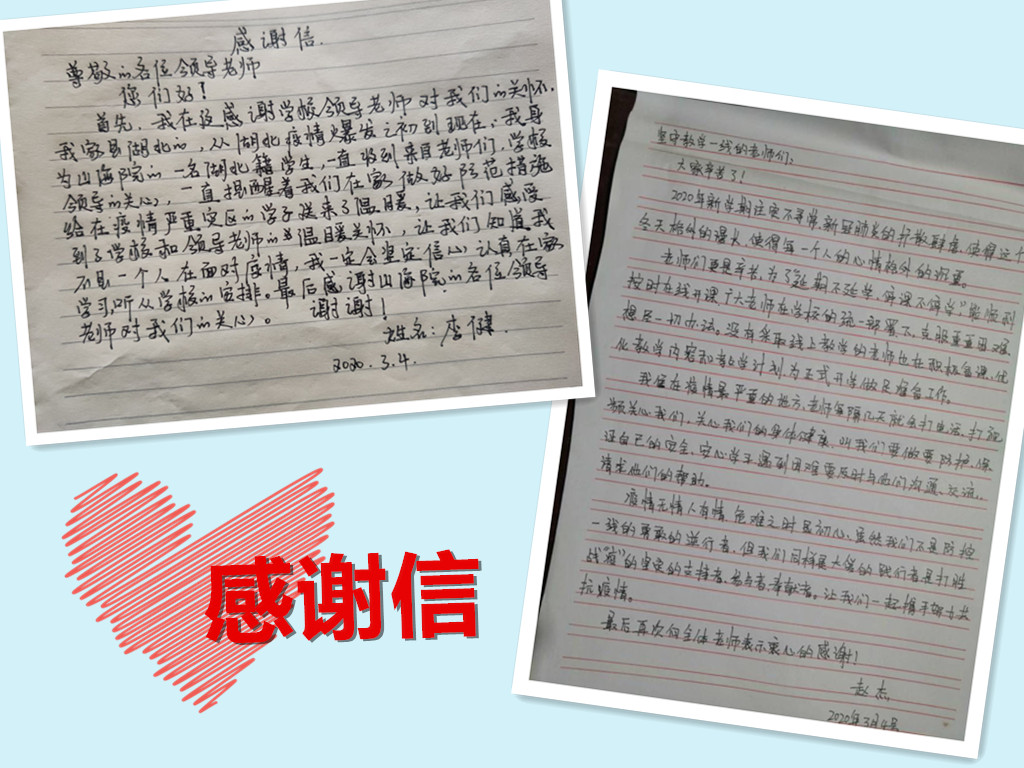 感谢信.
尊敬的各位领导老师
您们好！
首先，我在这感谢学校领导老师对我们的关怀.
我家是湖北的，从湖北疫情爆发之初到现在，我身
为山海院的一名湖北籍学生，一直收到来自老师们，学校
领导的关心，一直提醒着我们在家做好防范措施
给在疫情严重灾区的学子送来了温暖，让我们感受
到了学校和领导老师的温暖关怀，让我们知道我
不是一个人在面对疫情，我一定会坚定信心认真在家
学习，听从学校的安排。最后感谢山海院的各位领导
老师对我们的关心。 谢谢！
姓名：李健.
2020.3.4.
坚守教学一线的老师们：
大家辛苦了！
2020年新学期注定不寻常，新冠肺炎的扩散肆虐，使得这个
冬天格外的漫长，使得每一个人的心情格外的沉重。
老师们更是辛苦，为了"延期不延学，停课不停学"能顺利
按时在线开课广大老师在学校的统一部署下，克服重重困难，
想尽一切办法。没有采取线上教学的老师也在积极备课，优
化教学内容和教学计划为正式开学做足准备工作。
我住在疫情最严重的地方，老师每隔几天就会打电话，打视
频关心我们，关心我们的身体健康，叫我们要做要防护，保
证自己的安全，安心学习遇到困难要及时与他们沟通、交流，
请求他们的帮助。
疫情无情人有情，危难之时显初心，虽然我们不是防控
一线的勇敢的逆行者，但我们同样是大爱的践行者是打胜
战"疫"的坚定的支持者，参与者，奉献者。让我们一起携手努力共
抗疫情。
最后再次向全体老师表示衷心的感谢！
赵杰
2020年3月4号
感谢信